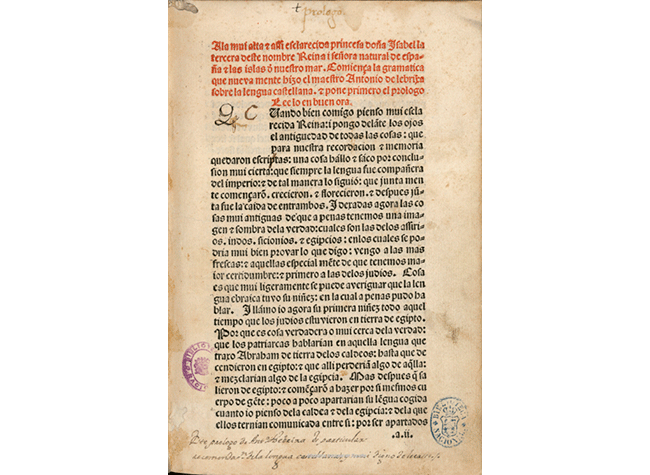 prologo
A la mui alta ⁊ assi esclarecida princesa doña Isabel la
tercera deste nombre Reina i señora natural de espa-
ña ⁊ las islas ð nuestro mar. Comiença la gramatica
que nueva mente hizo el maestro Antonio de lebrixa
sobre la lengua castellana. ⁊ pone primero el prologo
Lee lo en buen ora.
Q C Uando bien comigo pienso mui escla
recida Reina: i pongo delãte los ojos
el antiguedad de todas las cosas: que
para nuestra recordacion ⁊ memoria
quedaron escriptas: una cosa hállo ⁊ sáco por conclu-
sion mui cierta: que siempre la lengua fue compañera
del imperio: ⁊ de tal manera lo siguió: que junta men
te començarõ. crecieron. ⁊ florecieron. ⁊ despues jũ-
ta fue la caida de entrambos. I dexadas agora las co
sas mui antiguas de que a penas tenemos una ima-
gen ⁊ sombra dela verdad: cuales son las delos assiri-
os. indos. sicionios. ⁊ egipcios: enlos cuales se po-
dria mui bien provar lo que digo: vengo a las mas
frescas: ⁊ aquellas especial mẽte de que tenemos ma-
ior certidumbre: ⁊ primero a las delos judios. Cosa
es que mui ligeramente se puede averiguar que la len
gua ebraica tuvo su niñez: en la cual a penas pudo ha
blar. I llámo io agora su primera niñez todo aquel
tiempo que los judios estuvieron en tierra de egipto.
Por que es cosa verdadera o mui cerca dela verdad:
que los patriarcas hablarian en aquella lengua que
traxo Abraham de tierra delos caldeos: hasta que de
cendieron en egipto: ⁊ que alli perderiã algo de aq̃lla:
⁊ mezclarian algo de la egipcia. Mas despues q̃ sa
lieron de egipto: ⁊ començarõ a hazer por si mesmos cu
erpo de gẽte: poco a poco apartarian su lẽgua cogida
cuanto io pienso dela caldea ⁊ dela egipcia: ⁊ dela que
ellos ternian comunicada entre si: por ser apartados
.a.ii.